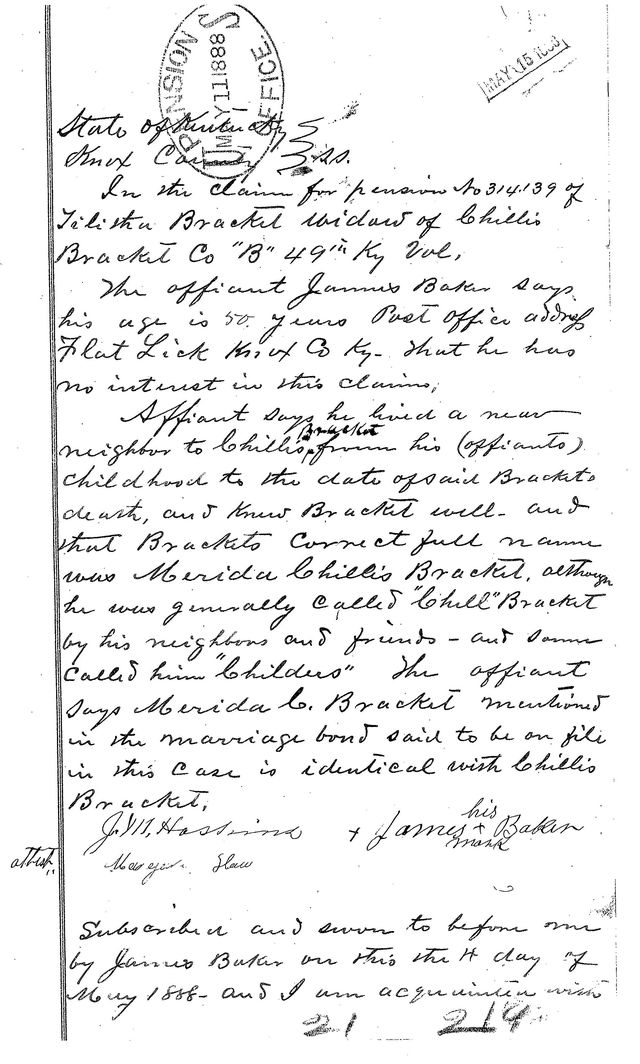 PENSION OFFICE.
MAY 11 1888
U S
MAY 15 1888
State of Kentucky
Knox County } SS.
In the claim for pension No 314.139 of
Tilitha Bracket widow of Chillis
Bracket Co "B" 49th Ky Vol,
The affiant James Baker says
his age is 50 years Post office address
Flat Lick Knox Co Ky- that he has
no interest in this claim,
Affiant says he lived a near
neighbor to Chillis Bracket from his (affiants)
childhood to the date of said Brackets
death, and knew Bracket well- and
that Brackets correct full name
was Merida Chillis Bracket, although
he was generally called "Chill" Bracket
by his neighbors and friends - and some
called him "Childers" The affiant
says Merida C. Bracket mentioned
in the marriage bond said to be on file
in this case is identical with Chillis
Bracket,
his
+ James + Baker
mark
attest,
Subscribed and sworn to before me
by James Baker on this the 4 day of
May 1888- and I am acquainted with
21 214